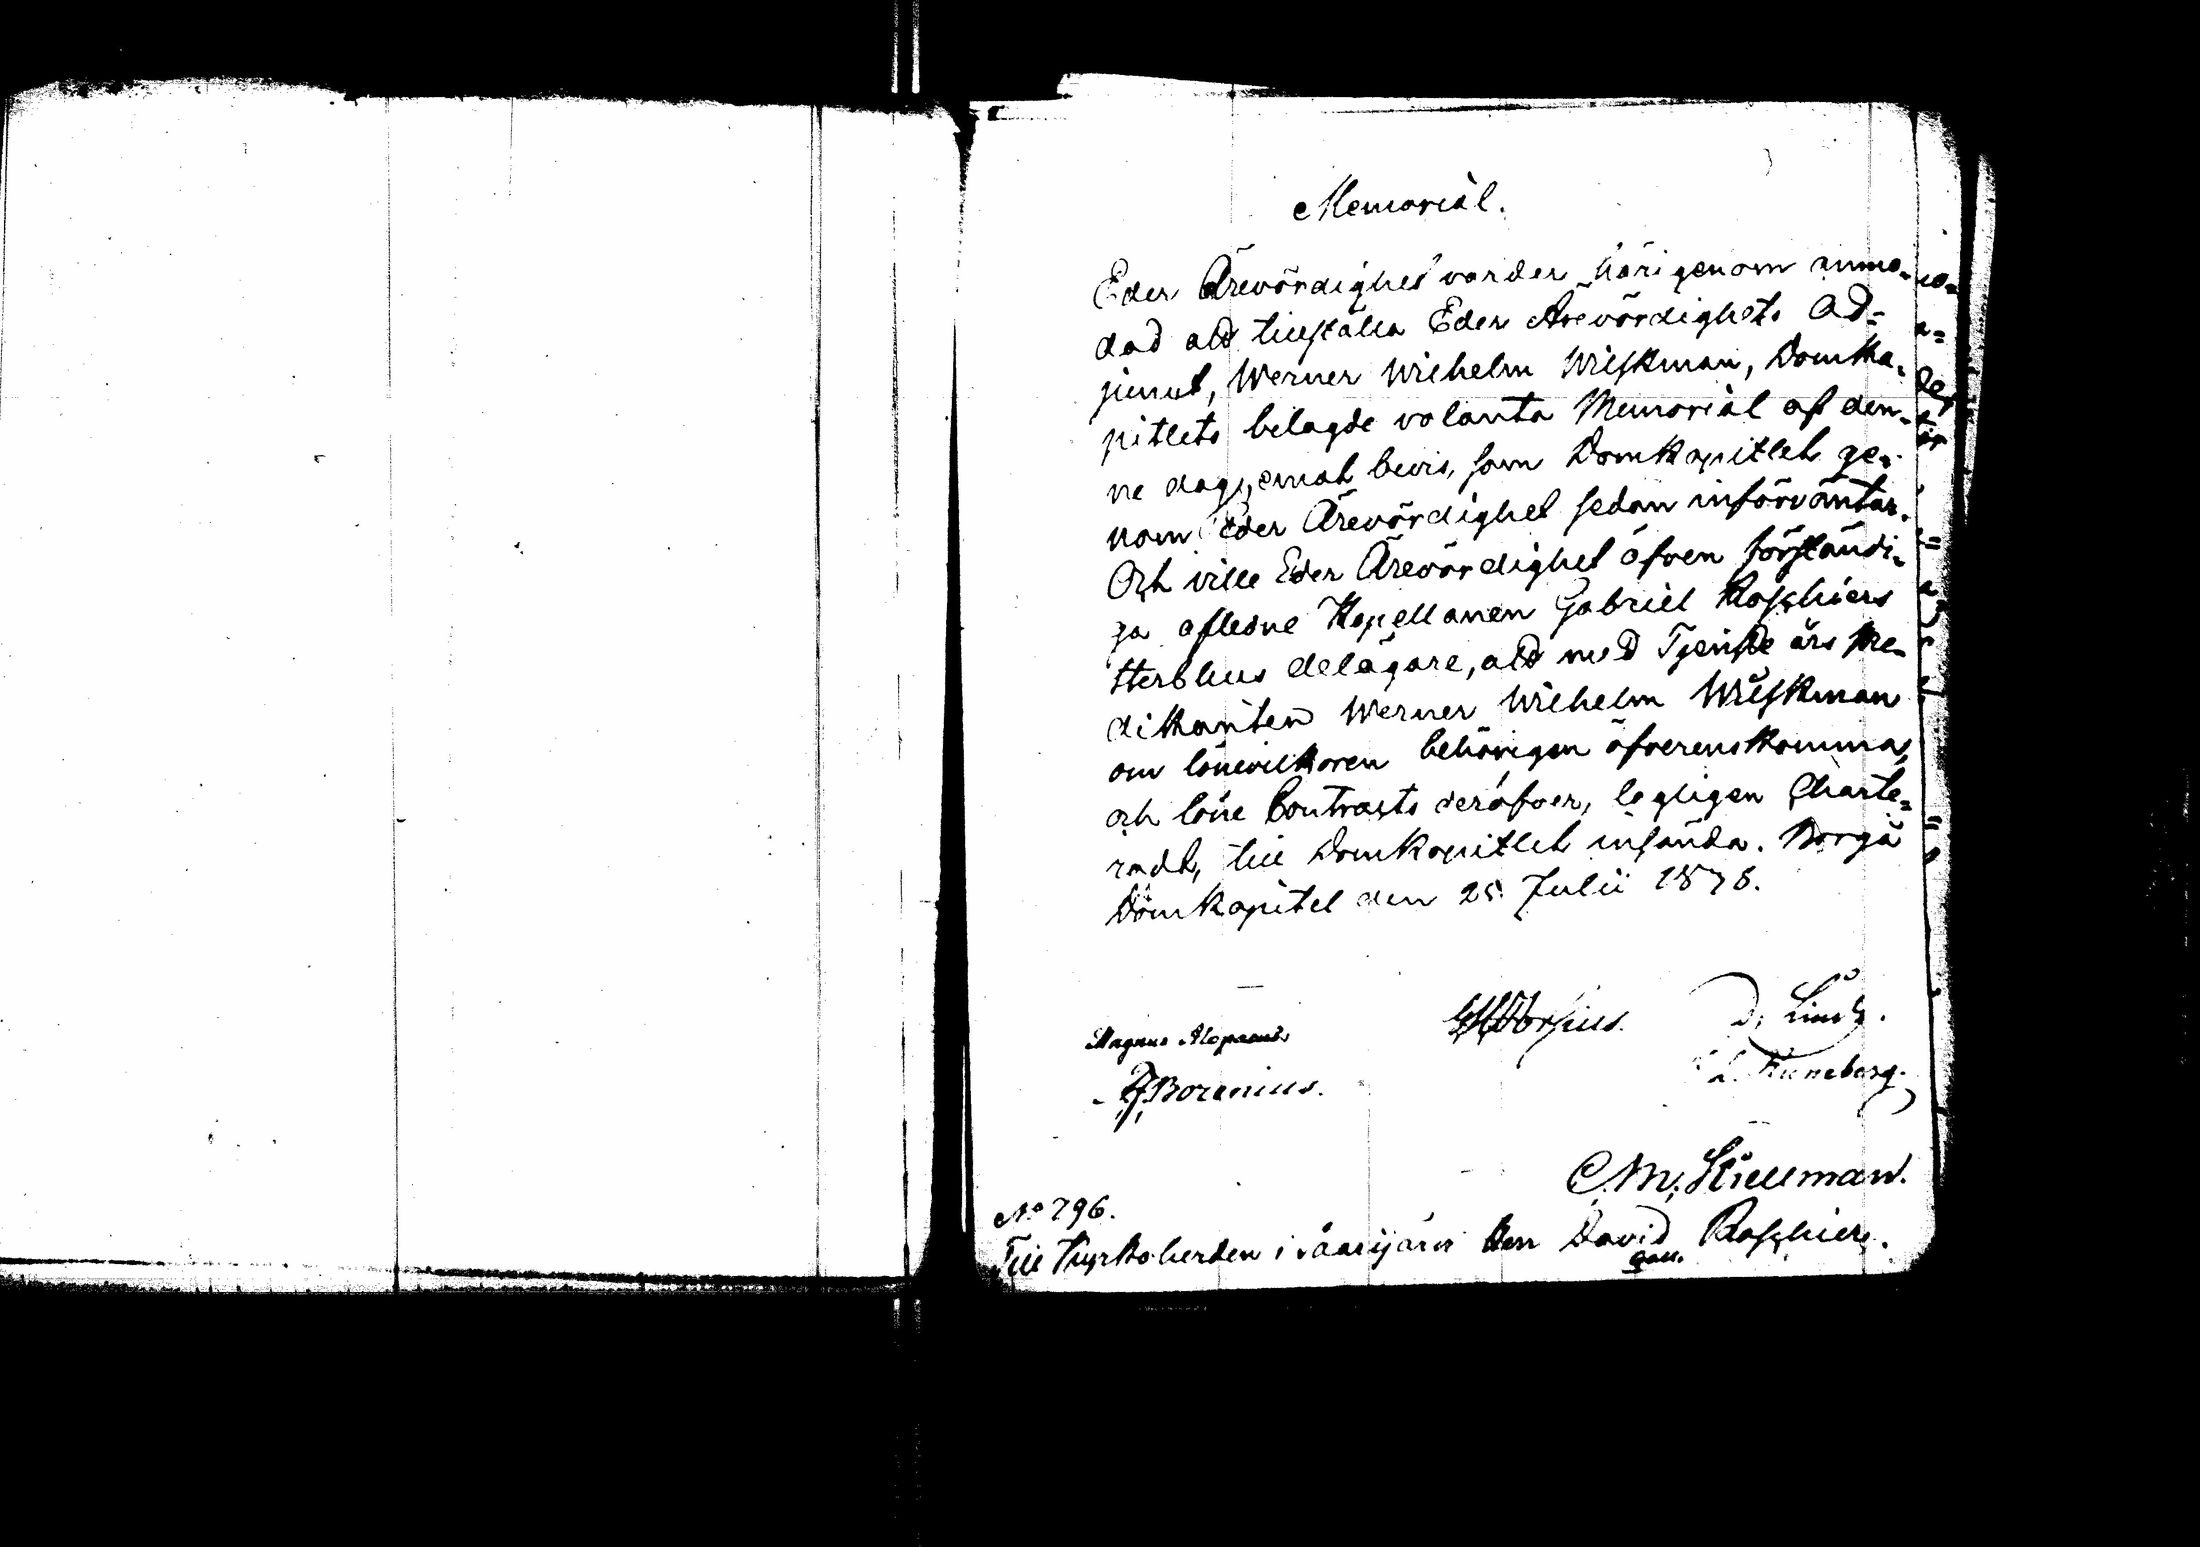 Memorial.
Eder Ärevördighet varder härigenom anmo-
dad att tillställa Eder Ärevördighets Ad-
junct, Werner Wilhelm Wilskman, Domka-
pitlets belagde volanta Memorial af den-
ne dag, emot bevis, som Domkapitlet ge-
nom Eder Ärevördighet sedan införväntar.
Och ville Eder Ärevördighet äfven förständi-
ga aflidne Kapellanen Gabriel Roschiers
sterbhus delägare, att med Tjenste års Pre-
dikanten Werner Wilhelm Wilskman
om lönevilkoren behörigen öfverenskomma,
och löne Contracts deröfver, lagligen Charte-
radt, till Domkapitlet insända. Borgå
Domkapitel den 25 Julii 1838.
Magnus Alopaeus D. Limdh.
Borenius. Runeberg.
C. M. Stillman.
No 796.
Till Kyrkoherden i Saarijärvi Herr David Gab. Roschier.